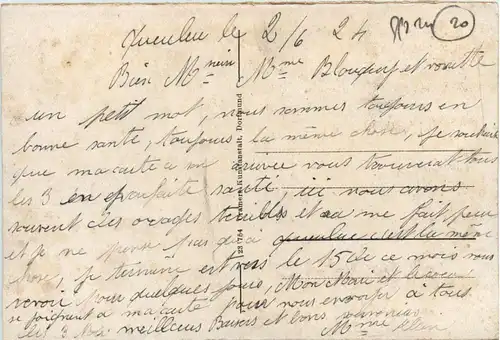 Queuleu le 2/6 24 20
Bien Mme
un petit mot, nous sommes toujours en
bonne santé, toujours la même chose, je souhaite
que ma carte a son arrivée vous trouverait tous
les 3 en parfaite santé, ici nous avons
souvent des orages terribles et ça me fait peur
et je ne pense pas qu'à Queuleu c'est la même
chose, je termine et vers le 15 de ce mois vous
revoir pour quelques jours, Mon Mari et
se joignant à ma carte pour vous envoyer à tous
les 3 nos meilleurs Baisers et bons souvenirs
Mme Klein
23 784 Kunstanstalt, Dortmund